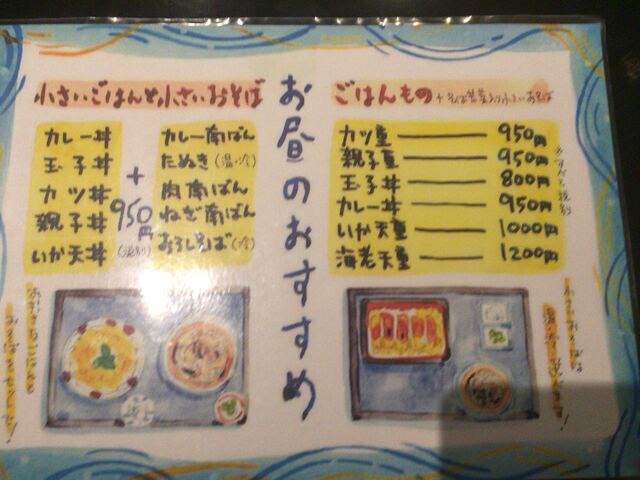 お昼のおすすめ
小さいごはんと小さいおそば
カレー丼
玉子丼
カツ丼
親子丼
いか天丼
+
950円
(税別)
カレー南ばん
たぬき(温・冷)
肉南ばん
ねぎ南ばん
おろしそば(冷)
ごはんもの
カツ重 950円
親子重 950円
玉子丼 800円
カレー丼 950円
いか天重 1000円
海老天重 1200円
※すべて税別